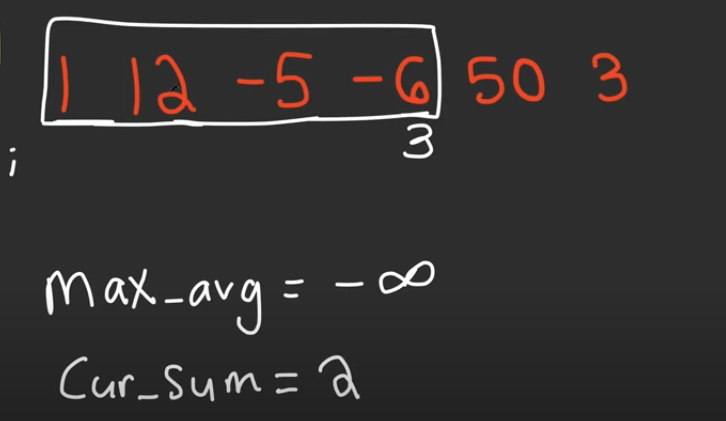 1 12 -5 -6 50 3
3
i
max_avg = -∞
Cur_sum = 2